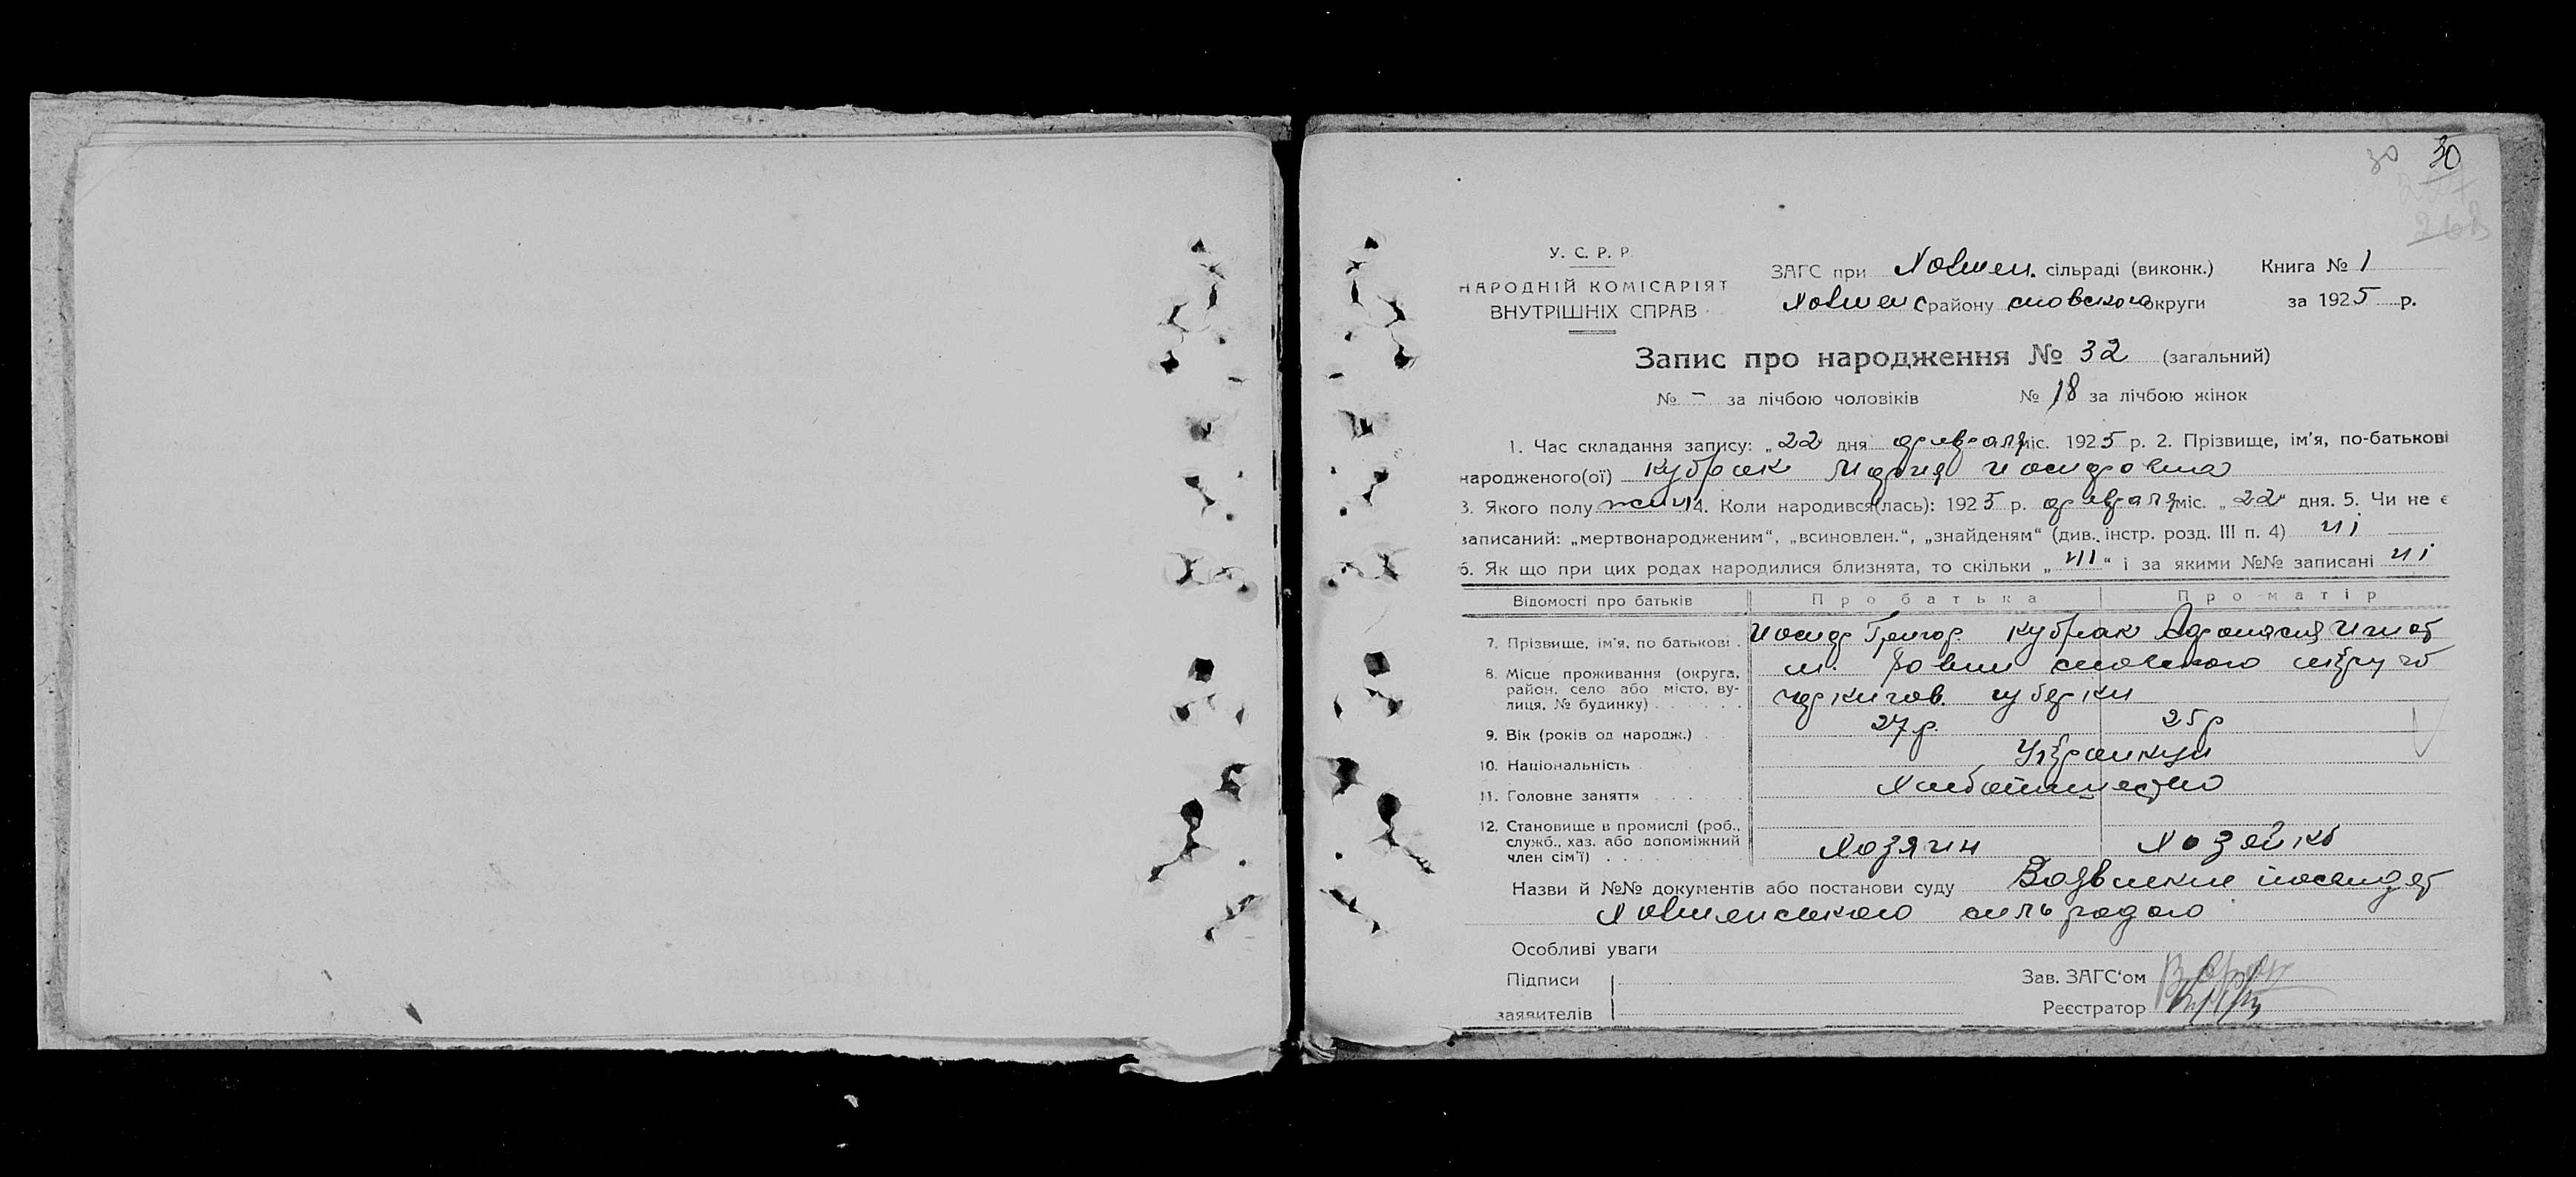 30 30
У. С. Р. Р.
НАРОДНІЙ КОМІСАРІЯТ
ВНУТРІШНІХ СПРАВ
ЗАГС при Ховмен. сільраді (виконк.) Книга № 1
Ховменс району сновского округи за 1925 р.
Запис про народження № 32 (загальний)
№ - за лічбою чоловіків № 18 за лічбою жінок
1. Час складання запису: „22 дня февраля міс. 1925 р. 2. Прізвище, ім'я, по-батькові
народженого(ої) Кубрак Мария Иосифовна
3. Якого полу жін 4. Коли народився(лась): 1925 р. февраля міс. „22" дня. 5. Чи не є
записаний: „мертвонародженим", „всиновлен.", „знайденям" (див. інстр. розд. III п. 4) ні
6. Як що при цих родах народилися близнята, то скільки „ні" і за якими №№ записані ні
Відомості про батьків Про батька Про матір
7. Прізвище, ім'я, по батькові . Иосиф Григор Кубрак
8. Місце проживання (округа, м. сновского
район, село або місто, ву-
лиця, № будинку) . . . . . губерни
9. Вік (років од народж.) . 27 р. 25 р
10. Національність Украинци
11. Головне заняття . . . . .
12. Становище в промислі (роб.,
служб., хаз. або допоміжний
член сім'ї) . . . . . Хозяин Хозяйка
Назви й №№ документів або постанови суду
Ховменського сильрадою
Особливі уваги
Підписи
заявителів
Зав. ЗАГС'ом
Реєстратор